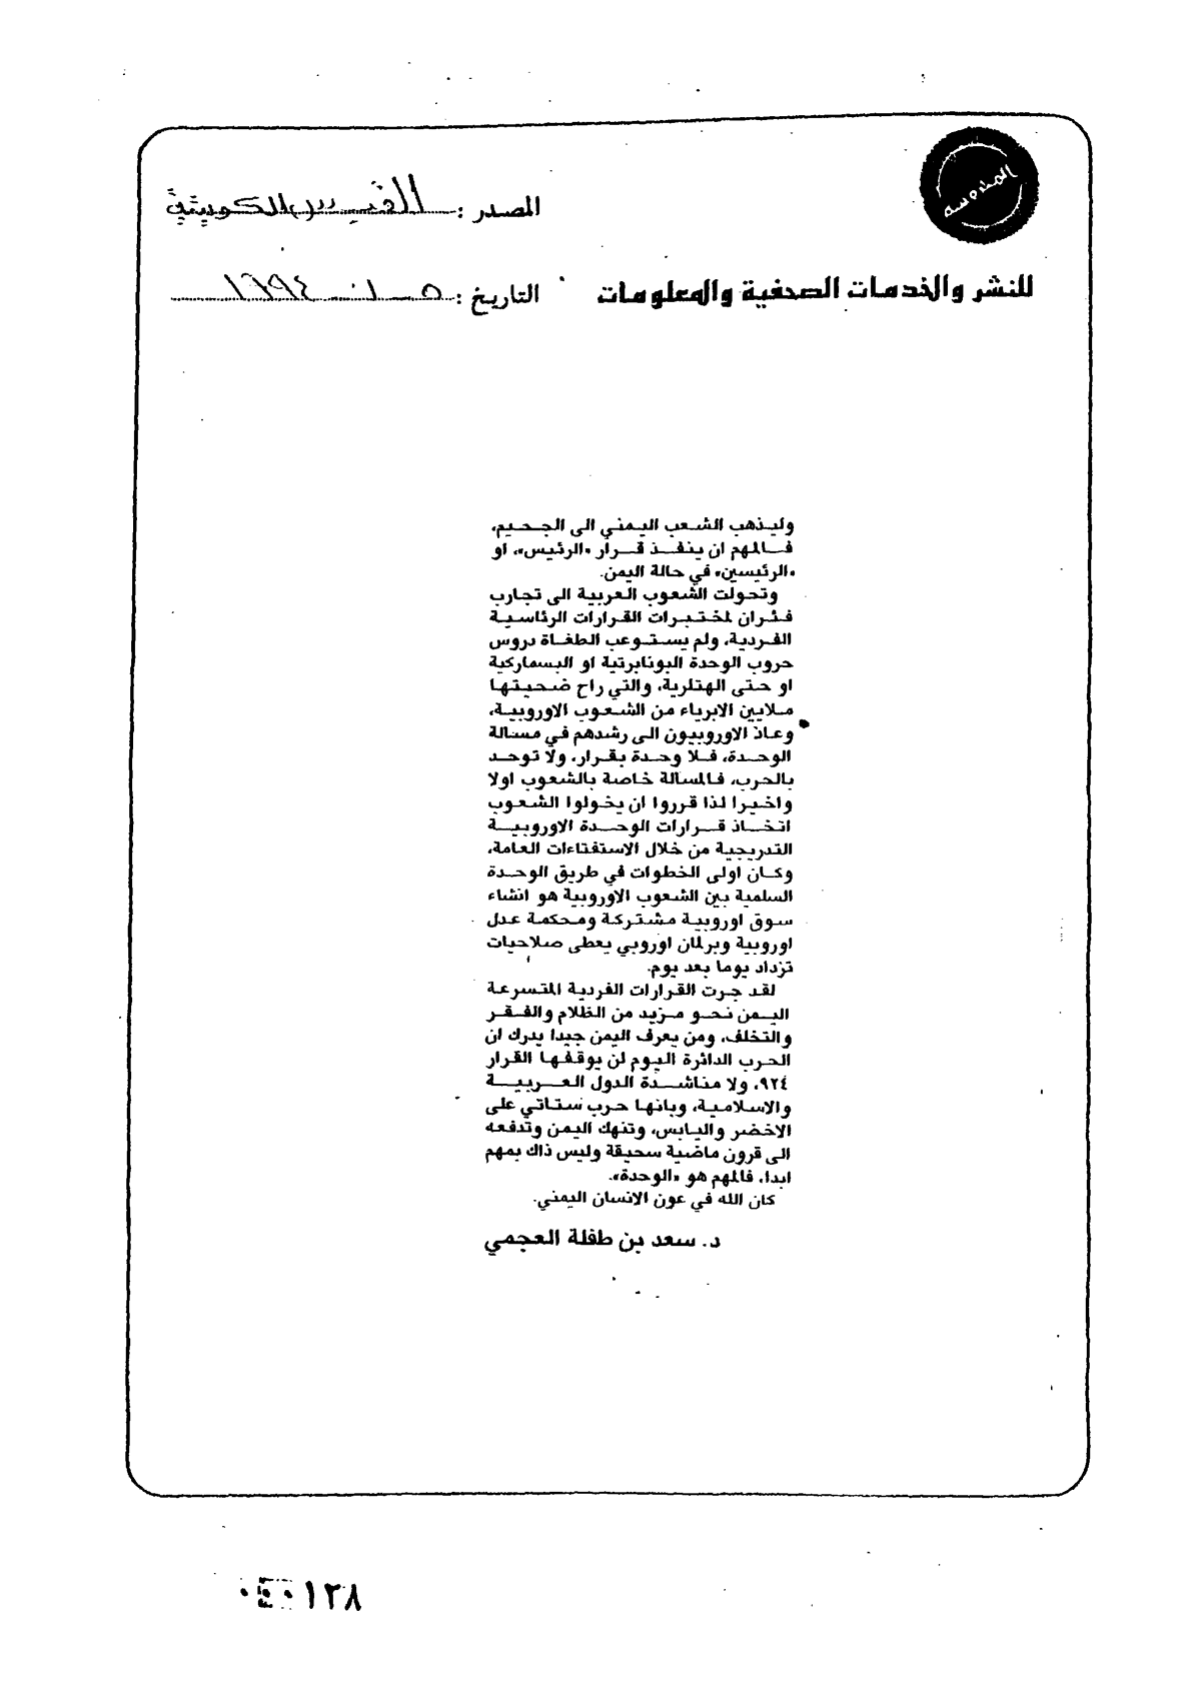 المصدر : القبس الكويتية
للنشر والخدمات الصحفية والمعلومات
التاريخ : ١٩٩٤
وليذهب الشعب اليمني الى الجحيم،
فالمهم ان ينفذ قرار «الرئيس»، او
«الرئيسين» في حالة اليمن.
وتحولت الشعوب العربية الى تجارب
فئران لمختبرات القرارات الرئاسية
الفردية، ولم يستوعب الطغاة دروس
حروب الوحدة البونابرتية او البسماركية
او حتى الهتلرية، والتي راح ضحيتها
ملايين الابرياء من الشعوب الاوروبية،
وعاد الاوروبيون الى رشدهم في مسالة
الوحدة، فلا وحدة بقرار، ولا توحد
بالحرب، فالمسالة خاصة بالشعوب اولا
واخيرا لذا قرروا ان يخولوا الشعوب
اتخاذ قرارات الوحدة الاوروبية
التدريجية من خلال الاستفتاءات العامة،
وكان اولى الخطوات في طريق الوحدة
السلمية بين الشعوب الاوروبية هو انشاء
سوق اوروبية مشتركة ومحكمة عدل
اوروبية وبرلمان اوروبي يعطى صلاحيات
تزداد يوما بعد يوم.
لقد جرت القرارات الفردية المتسرعة
اليمن نحو مزيد من الظلام والفقر
والتخلف، ومن يعرف اليمن جيدا يدرك ان
الحرب الدائرة اليوم لن يوقفها القرار
٩٢٤، ولا مناشدة الدول العربية
والاسلامية، وبانها حرب ستاتي على
الاخضر واليابس، وتنهك اليمن وتدفعه
الى قرون ماضية سحيقة وليس ذاك بمهم
ابدا، فالمهم هو «الوحدة».
كان الله في عون الانسان اليمني.
د. سعد بن طفلة العجمي